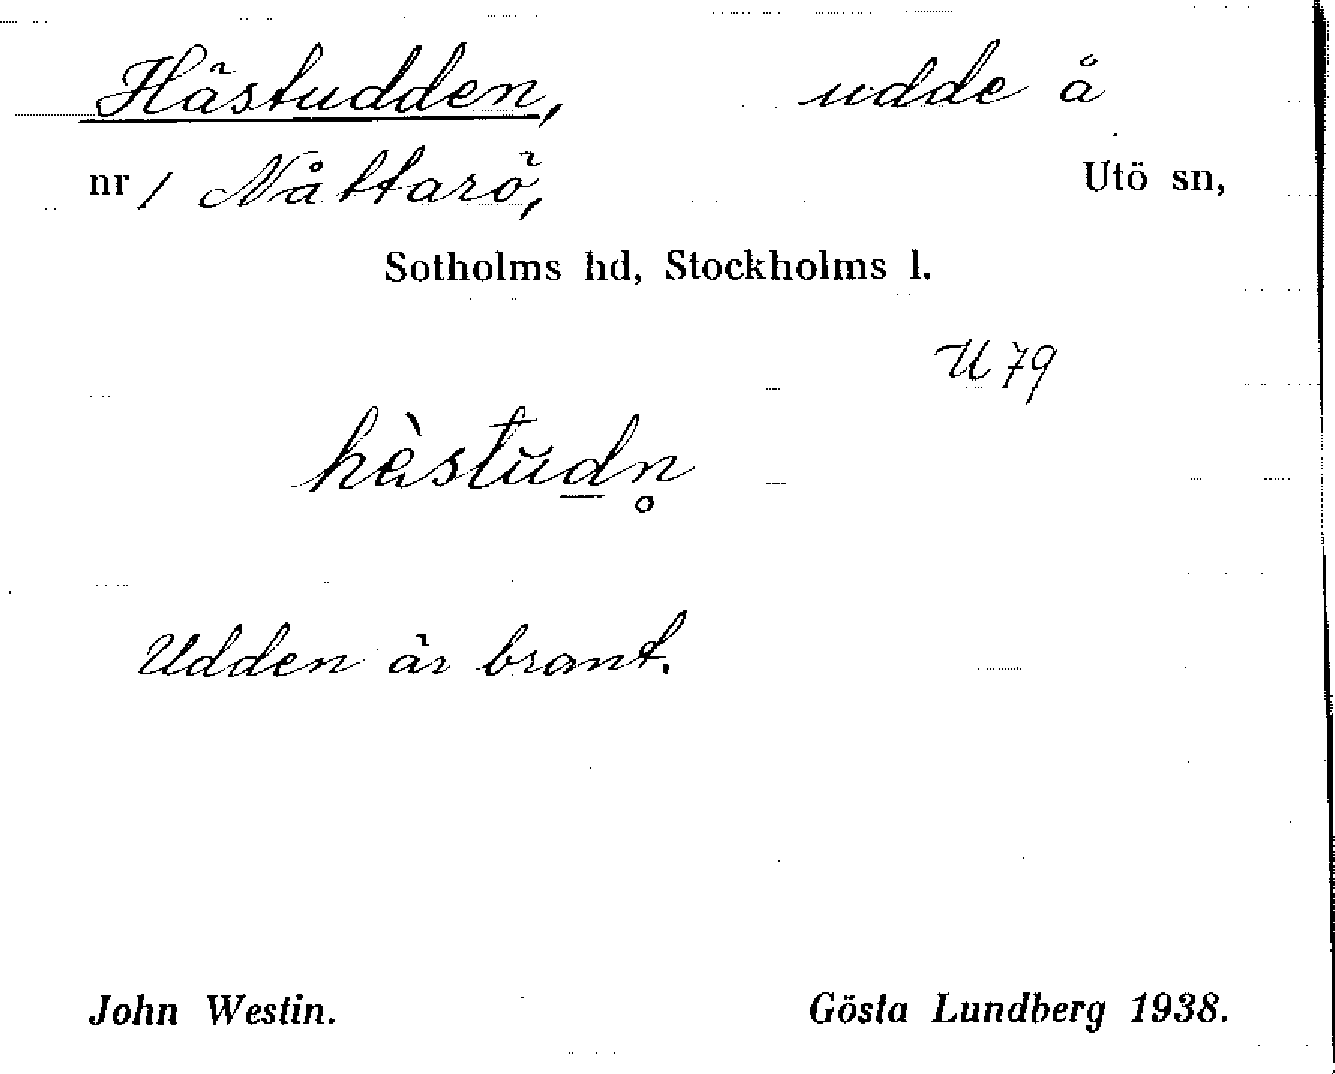 Hästudden, udde å
nr 1 Nåttarö, Utö sn,
Sotholms hd, Stockholms l.
U 79
hὲstŭdn̥
Udden är brant.
John Westin. Gösta Lundberg 1938.